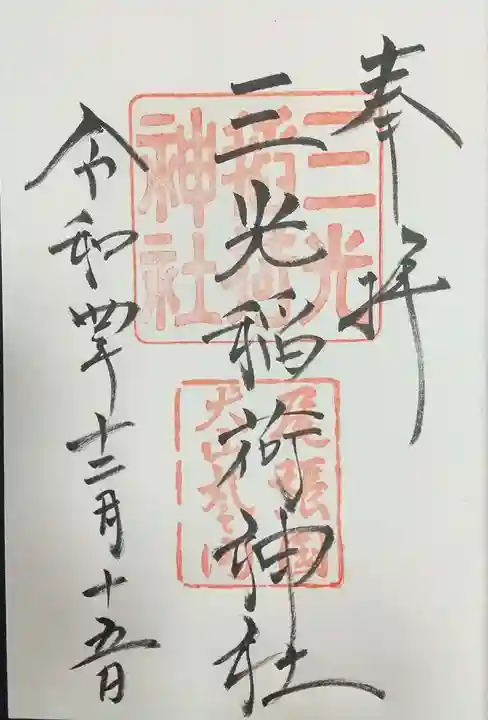 奉拝
三光稲荷神社
三光稲荷神社
尾張国
犬山
令和四年十二月十五日